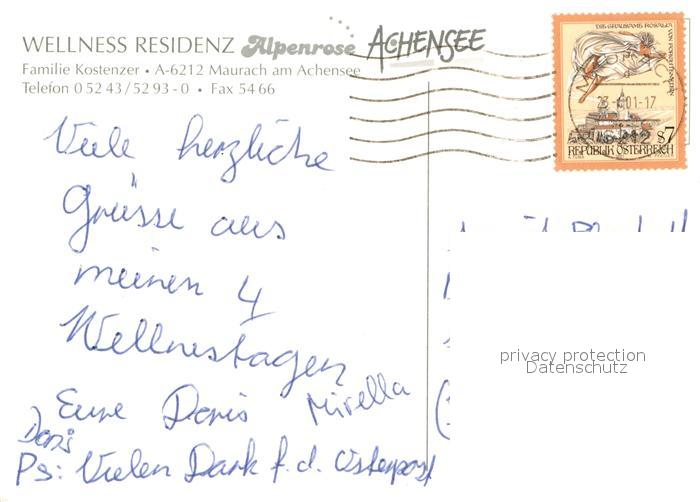 WELLNESS RESIDENZ Alpenrose ACHENSEE
Familie Kostenzer • A-6212 Maurach am Achensee
Telefon 0 52 43/52 93 - 0 • Fax 54 66
DIE GRAUSAME ROSALIA
VON FORCHTENSTEIN
23 01-17
S7
REPUBLIK ÖSTERREICH
Viele herzliche
Grüsse aus
meinen 4
Wellnestagen
Eure Doris Mirella
Doris
Ps: Vielen Dank f. d. Osterpost
privacy protection
Datenschutz